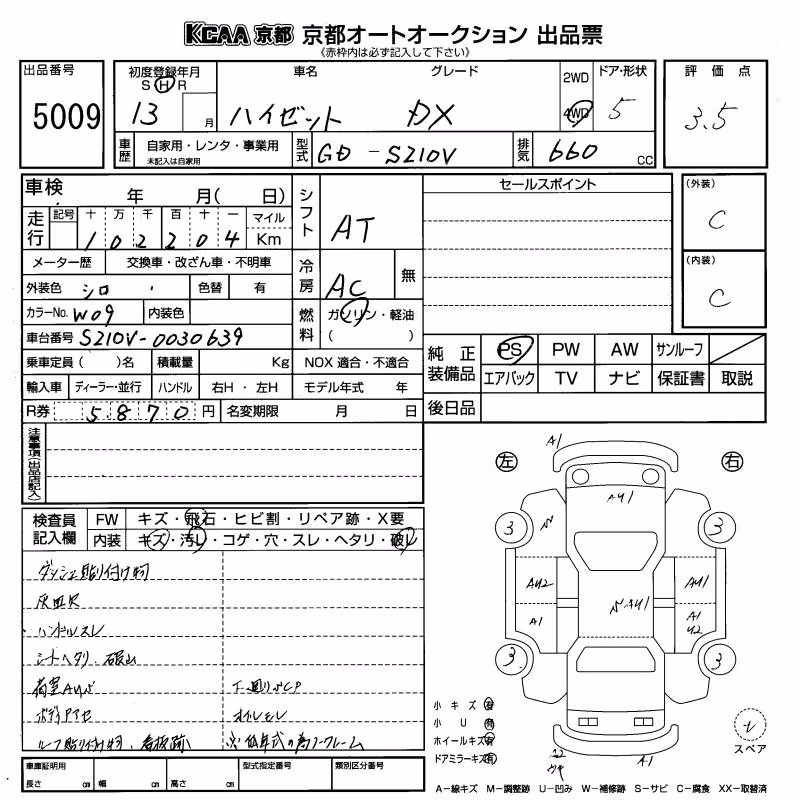 KCAA 京都 京都オートオークション 出品票
《赤枠内は必ず記入して下さい》
出品番号 5009
初度登録年月 S H R 13 月
車名 ハイゼット
グレード DX
2WD 4WD
ドア・形状 5
評価点 3.5
車歴 自家用・レンタ・事業用 未記入は自家用
型式 GD-S210V
排気 660 CC
車検 年 月( 日)
シフト AT
セールスポイント
(外装) C
走行 記号 十 万 千 百 十 一 マイル
1 0 2 2 0 4 Km
メーター歴 交換車・改ざん車・不明車
冷房 AC 無
(内装) C
外装色 シロ 色替 有
カラーNo. W09 内装色
燃料 ガソリン・軽油 ( )
車台番号 S210V-0030639
純正装備品 PS PW AW サンルーフ
エアバック TV ナビ 保証書 取説
乗車定員( )名 積載量 Kg NOX 適合・不適合
輸入車 ディーラー・並行 ハンドル 右H・左H モデル年式 年
後日品
R券 5870円 名変期限 月 日
注意事項(出品店記入)
検査員記入欄 FW キズ・飛石・ヒビ割・リペア跡・X要
内装 キズ・汚レ・コゲ・穴・スレ・ヘタリ・破レ
ダッシュ貼り付け物
灰皿欠
ハンドルスレ
シートヘタリ・破レ
荷室AU
ボディアセ
ルーフ貼り付け物、看板跡
下廻りCP
オイルモレ
左 右
A1
AU1
3 3
AU2 AU1
A1 A1
U2
AU1
3 3
小キズ 有
小U 有
ホイールキズ 有
ドアミラーキズ 有
A2 A1
スペア
車庫証明用 長さ cm 幅 cm 高さ cm 型式指定番号 類別区分番号
A−線キズ M−調整跡 U−凹み W−補修跡 S−サビ C−腐食 XX−取替済